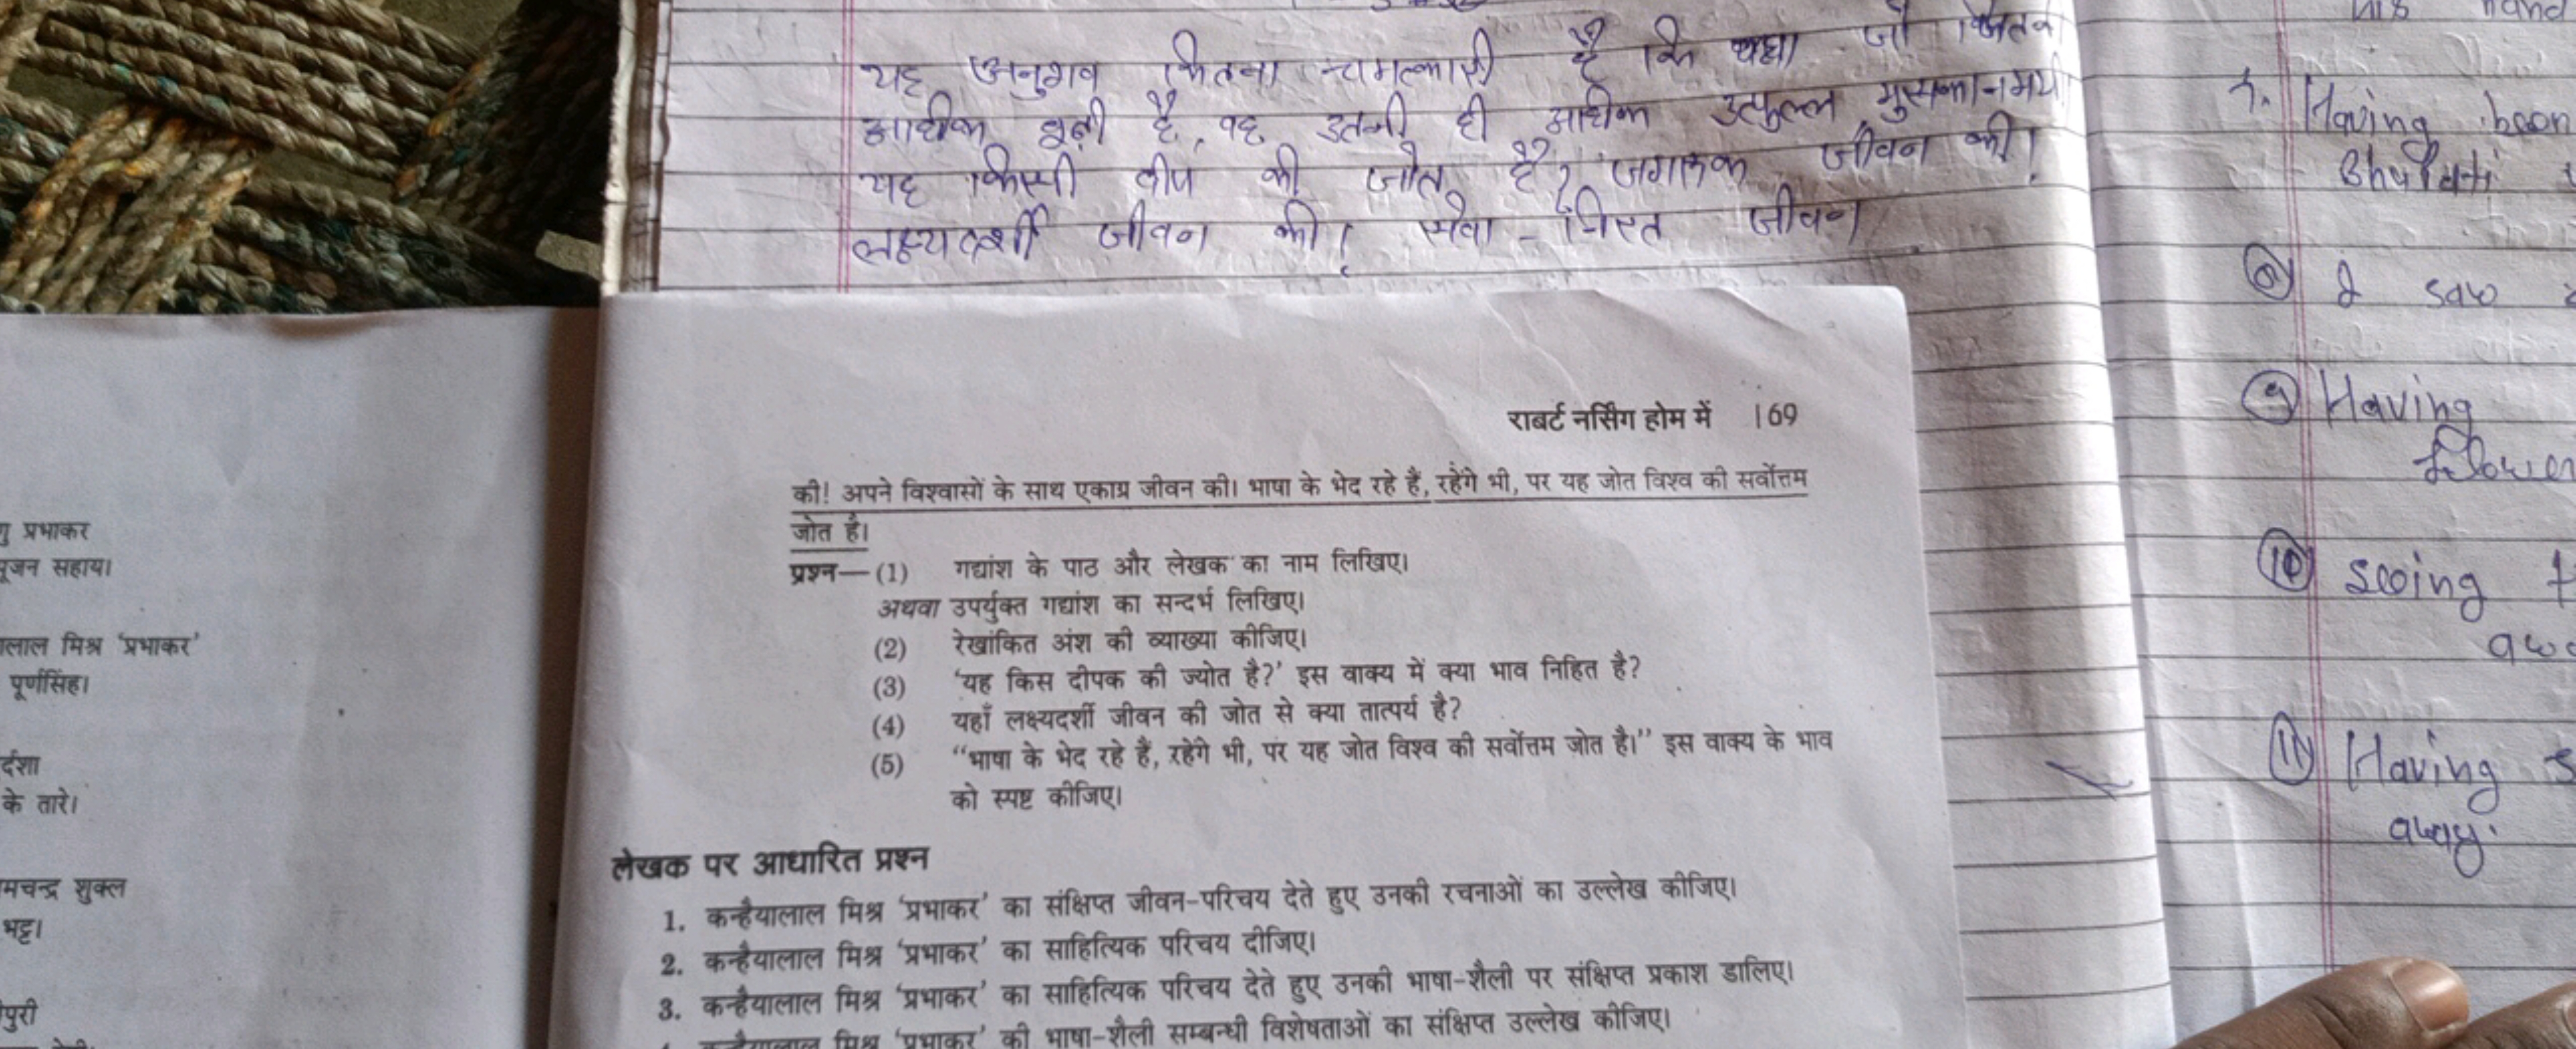 यह अनुभव कितना चमत्कारी है कि यहाँ जो जितनी
अधिक बूढ़ी है, वह उतनी ही अधिक उत्फुल्ल, मुसकानमयी
यह किसी दीप की जोत है? जागरूक जीवन की!
लक्ष्यदर्शी जीवन की! सेवा-निरत जीवन
राबर्ट नर्सिंग होम में 169
की! अपने विश्वासों के साथ एकाग्र जीवन की। भाषा के भेद रहे हैं, रहेंगे भी, पर यह जोत विश्व की सर्वोत्तम
जोत है।
प्रश्न— (1) गद्यांश के पाठ और लेखक का नाम लिखिए।
अथवा उपर्युक्त गद्यांश का सन्दर्भ लिखिए।
(2) रेखांकित अंश की व्याख्या कीजिए।
(3) ‘यह किस दीपक की ज्योत है?’ इस वाक्य में क्या भाव निहित है?
(4) यहाँ लक्ष्यदर्शी जीवन की जोत से क्या तात्पर्य है?
(5) “भाषा के भेद रहे हैं, रहेंगे भी, पर यह जोत विश्व की सर्वोत्तम जोत है।” इस वाक्य के भाव
को स्पष्ट कीजिए।
लेखक पर आधारित प्रश्न
1. कन्हैयालाल मिश्र ‘प्रभाकर’ का संक्षिप्त जीवन-परिचय देते हुए उनकी रचनाओं का उल्लेख कीजिए।
2. कन्हैयालाल मिश्र ‘प्रभाकर’ का साहित्यिक परिचय दीजिए।
3. कन्हैयालाल मिश्र ‘प्रभाकर’ का साहित्यिक परिचय देते हुए उनकी भाषा-शैली पर संक्षिप्त प्रकाश डालिए।
कन्हैयालाल मिश्र ‘प्रभाकर’ की भाषा-शैली सम्बन्धी विशेषताओं का संक्षिप्त उल्लेख कीजिए।
प्रभाकर
सहाय।
मिश्र ‘प्रभाकर’
पूर्णसिंह।
के तारे।
शुक्ल
भट्ट।
Having been
8 I saw
9 Having
10 seeing
11 Having
away.